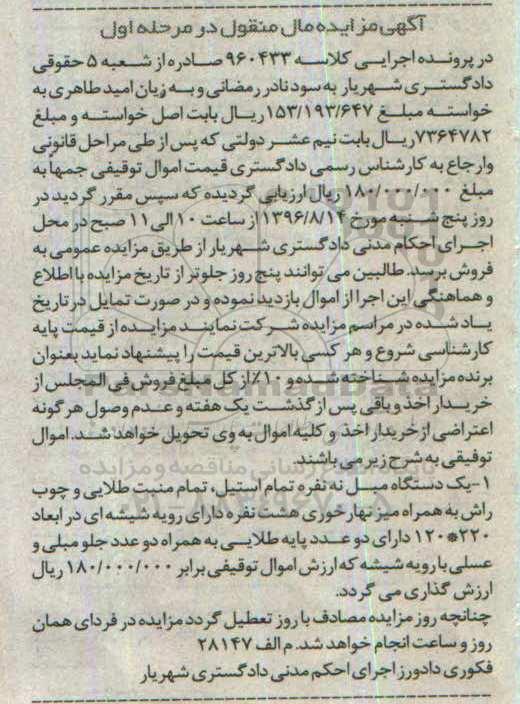 آگهی مزایده مال منقول در مرحله اول
در پرونده اجرایی کلاسه ۹۶۰۴۳۳ صادره از شعبه ۵ حقوقی
دادگستری شهریار به سود نادر رمضانی و به زیان امید طاهری به
خواسته مبلغ ۱۵۳/۱۹۳/۶۴۷ ریال بابت اصل خواسته و مبلغ
۷۳۶۴۷۸۲ ریال بابت نیم عشر دولتی که پس از طی مراحل قانونی
وارجاع به کارشناس رسمی دادگستری قیمت اموال توقیفی جمهاً به
مبلغ ۱۸۰/۰۰۰/۰۰۰ ریال ارزیابی گردیده که سپس مقرر گردید در
روز پنج شنبه مورخ ۱۳۹۶/۸/۱۴ از ساعت ۱۰ الی ۱۱ صبح در محل
اجرای احکام مدنی دادگستری شهریار از طریق مزایده عمومی به
فروش برسد. طالبین می توانند پنج روز جلوتر از تاریخ مزایده با اطلاع
و هماهنگی این اجرا از اموال بازدید نموده و در صورت تمایل در تاریخ
یاد شده در مراسم مزایده شرکت نمایند مزایده از قیمت پایه
کارشناسی شروع و هر کسی بالاترین قیمت را پیشنهاد نماید بعنوان
برنده مزایده شناخته شده و ۱۰٪ از کل مبلغ فروش فی المجلس از
خریدار اخذ و باقی پس از گذشت یک هفته و عدم وصول هر گونه
اعتراضی از خریدار اخذ و کلیه اموال به وی تحویل خواهد شد. اموال
توقیفی به شرح زیر می باشند.
۱-یک دستگاه مبل نه نفره تمام استیل، تمام منبت طلایی و چوب
راش به همراه میز نهار خوری هشت نفره دارای رویه شیشه ای در ابعاد
۲۲۰*۱۲۰ دارای دو عدد پایه طلایی به همراه دو عدد جلو مبلی و
عسلی با رویه شیشه که ارزش اموال توقیفی برابر ۱۸۰/۰۰۰/۰۰۰ ریال
ارزش گذاری می گردد.
چنانچه روز مزایده مصادف با روز تعطیل گردد مزایده در فردای همان
روز و ساعت انجام خواهد شد. م الف ۲۸۱۴۷
فکوری دادورز اجرای احکم مدنی دادگستری شهریار